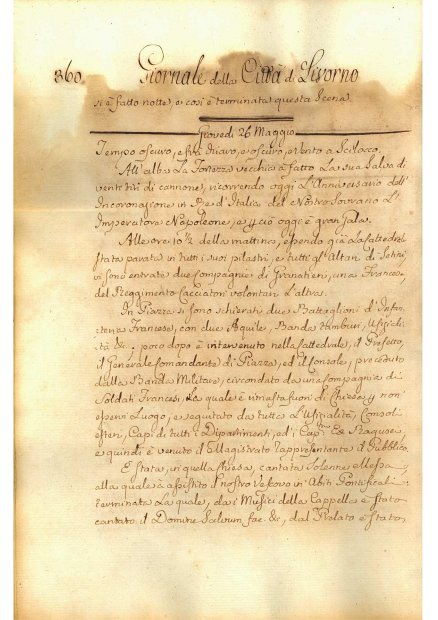 360. Giornale della Città di Livorno
si è fatto notte, e così è terminata questa Scena.
Giovedì 26 Maggio
Tempo oscuro, e oscuro, e vento a Scilocco.
All'alba La Fortezza vecchia à fatto La sua Salva di
venti tiri di cannone, ricorrendo oggi L'Anniversario dell'
Incoronazione in Re d'Italia del Nostro Sovrano L'
Imperatore Napoleone, e p ciò oggi è gran Gala.
Alle ore 10½ della mattina, essendo già La Cattedral
stata parata in tutti i suoi pilastri, e tutti gl'Altari di
vi sono entrate due compagnie di Granatieri, una Francese
del Reggimento Cacciatori volontari L'altra.
In Piazza si sono schierati due Battaglioni d'Infan
teria Francese, con due Aquile, Banda Tamburi, Ufiziali
tà &c.; poco dopo è intervenuto nella Cattedrale, il Prefetto,
il Generale Comandante di Piazza, ed il Console, preceduto
dalla Banda Militare, circondato da una Compagnia di
Soldati Francesi, La quale è rimasta fuori di Chiesa p non
esservi Luogo, e seguitato da tutta L'Ufizialità, Consoli
esteri, Capi di tutti i Dipartimenti, ed i Capi Ex Ragusei
e quindi è venuto il Magistrato rappresentante il Pubblico.
È stata, in quella Chiesa, cantata Solenne Messa,
alla quale à assistito il nostro Vescovo in Abiti Pontificali:
terminata La quale, da i Musici della Cappella è stato
cantato il Domine Salvum fac. &c., dal Prelato è stato